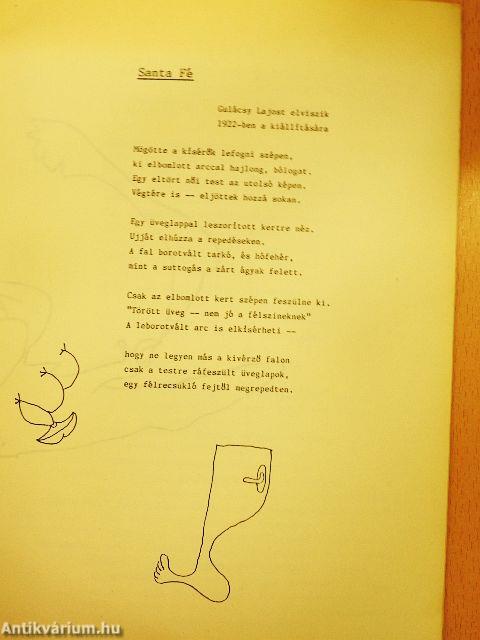 Santa Fé
Gulácsy Lajost elviszik
1922-ben a kiállítására
Mögötte a kísérők lefogni szépen,
ki elbomlott arccal hajlong, bólogat.
Egy eltört női test az utolsó képen.
Végtére is -- eljöttek hozzá sokan.
Egy üveglappal leszorított kertre néz.
Ujját elhúzza a repedéseken.
A fal borotvált tarkó, és hófehér,
mint a suttogás a zárt ágyak felett.
Csak az elbomlott kert szépen feszülne ki.
"Törött üveg -- nem jó a félszineknek"
A leborotvált arc is elkísérheti --
hogy ne legyen más a kivérző falon
csak a testre ráfeszült üveglapok,
egy félrecsukló fejtől megrepedten.
Antikvárium.hu